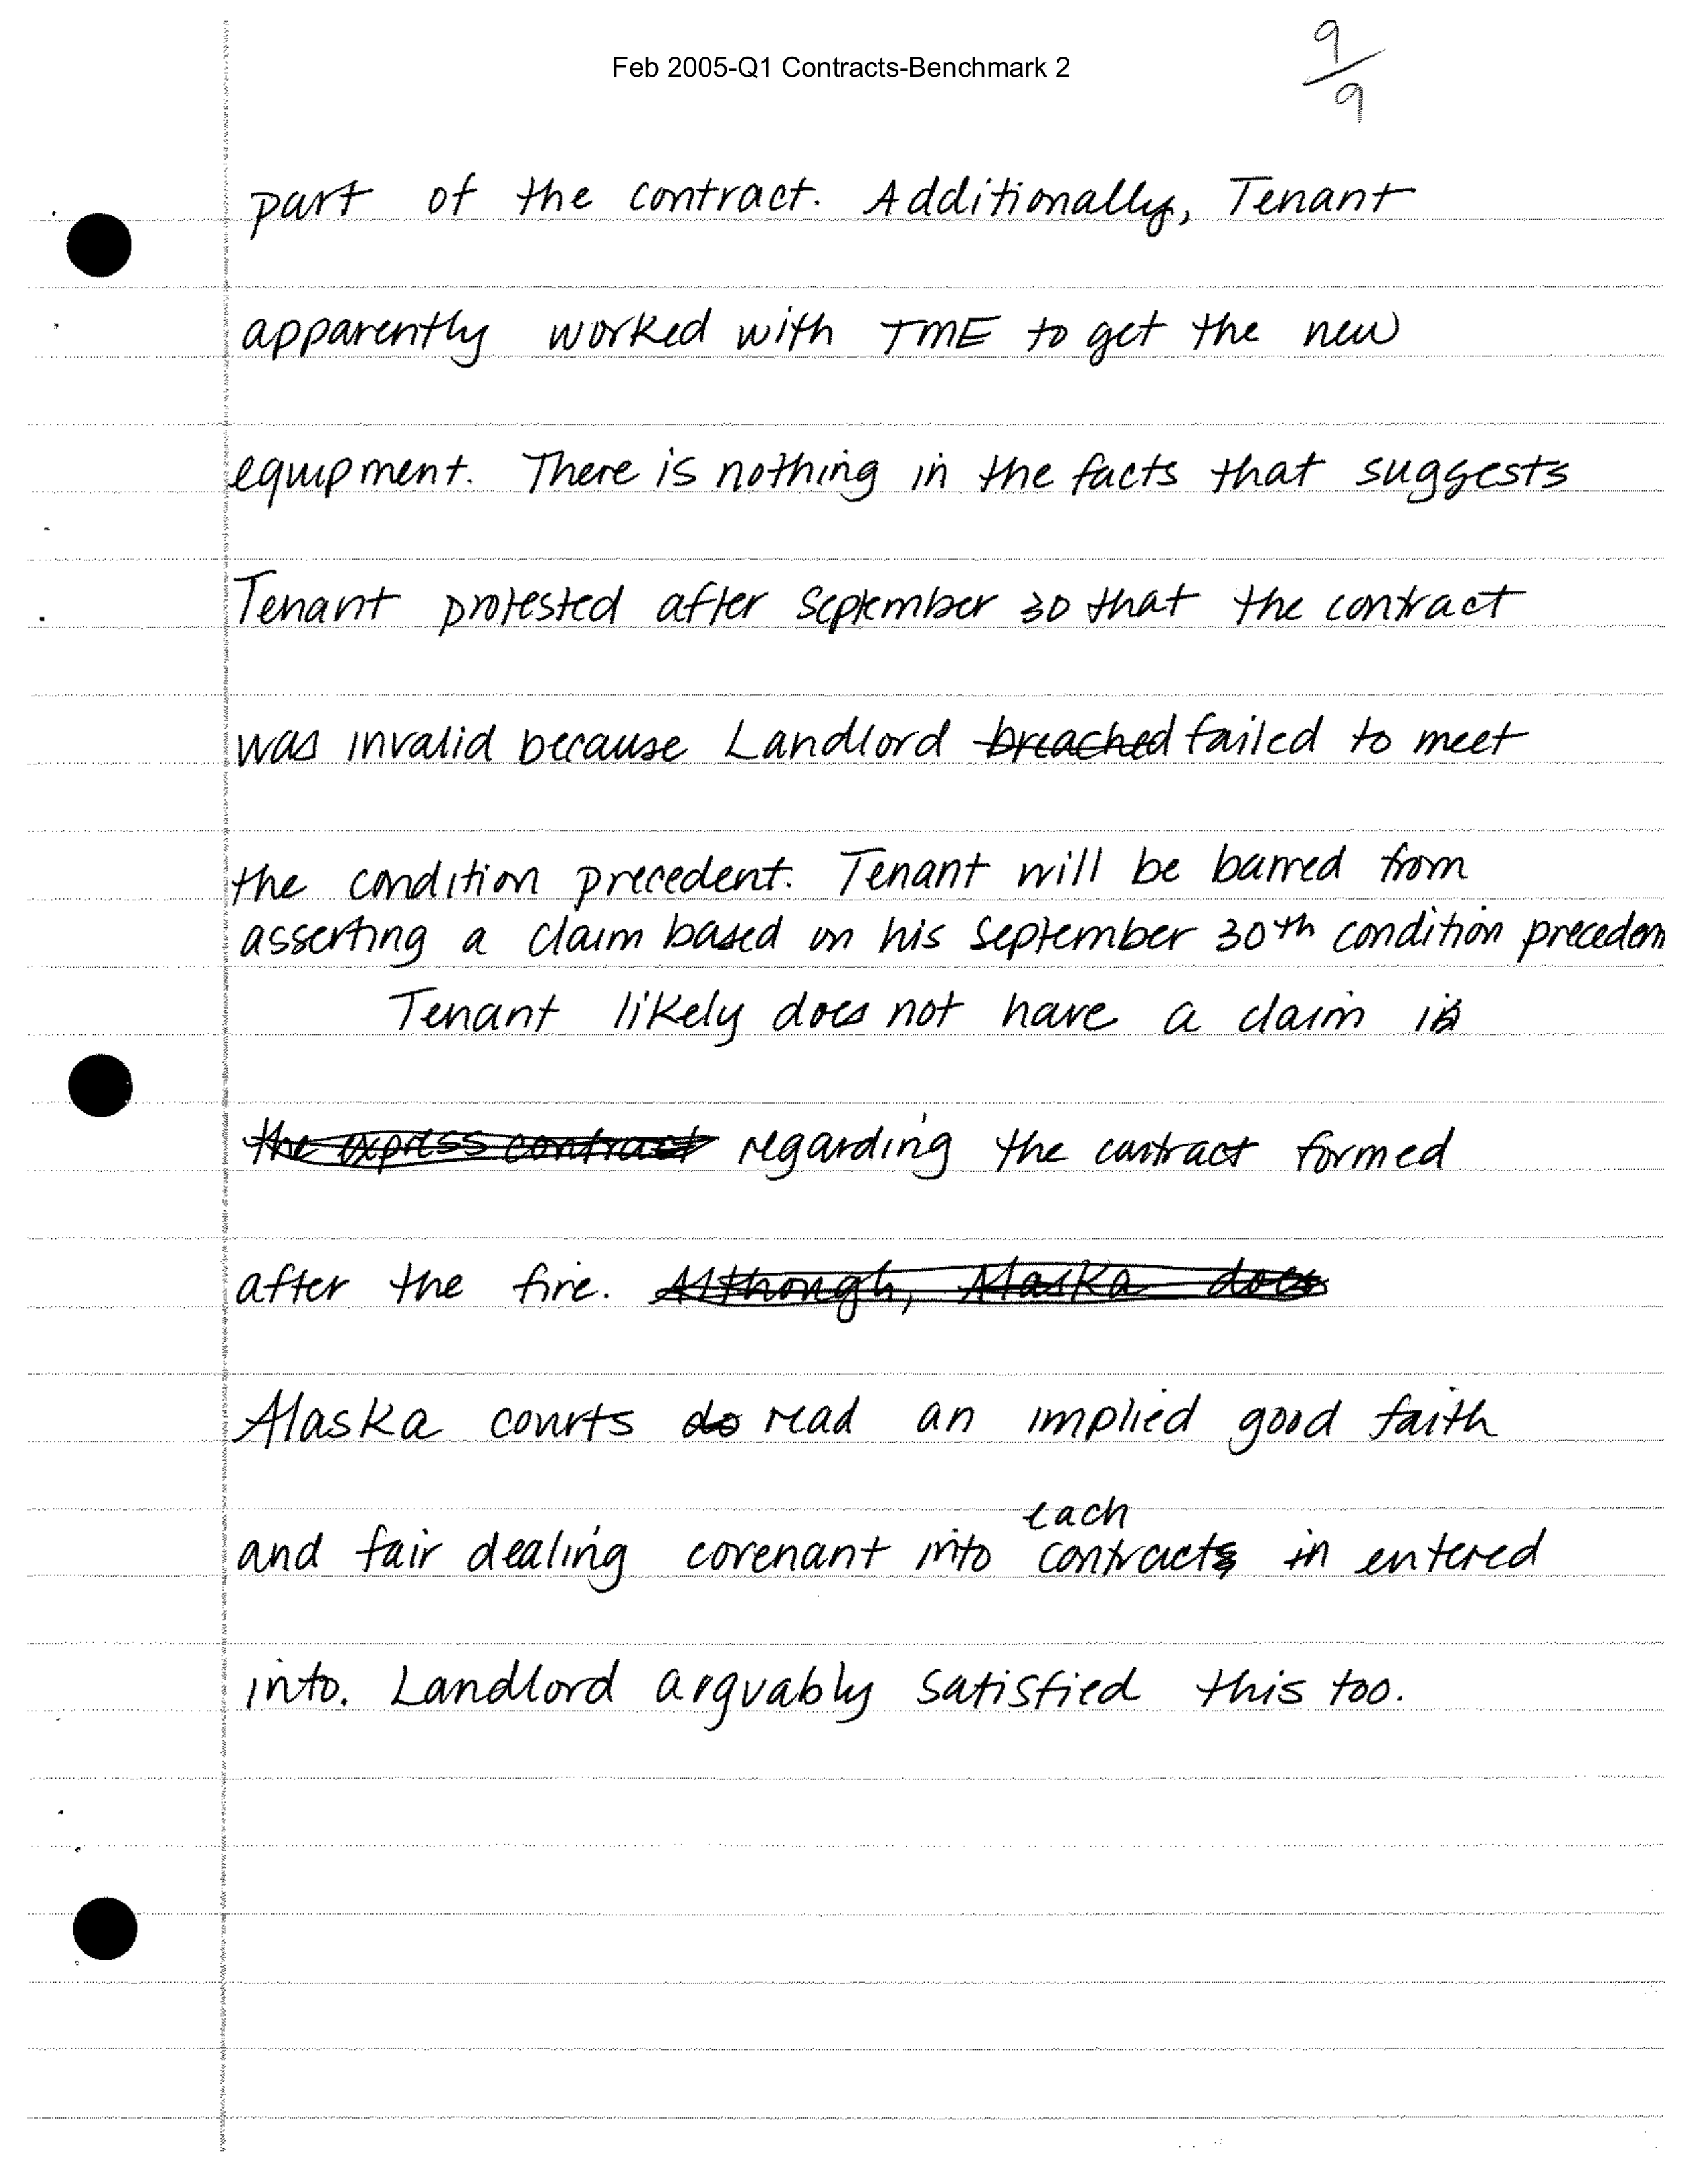 Feb 2005-Q1 Contracts-Benchmark 2
9/9
part of the contract. Additionally, Tenant
apparently worked with TME to get the new
equipment. There is nothing in the facts that suggests
Tenant protested after September 30 that the contract
was invalid because Landlord breached failed to meet
the condition precedent. Tenant will be barred from
asserting a claim based on his September 30th condition preceden
Tenant likely does not have a claim in
the express contract regarding the contract formed
after the fire. Although, Alaska does
Alaska courts do read an implied good faith
each
and fair dealing covenant into contracts in entered
into. Landlord arguably satisfied this too.